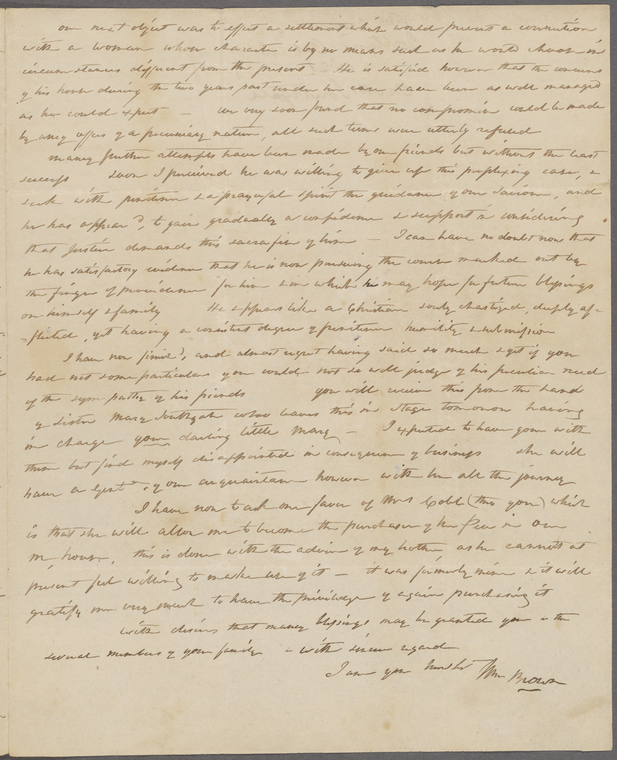 our next object was to effect a settlement which would prevent a connection
with a woman whose character is by no means such as he would choose in
circumstances different from the present He is satisfied however that the concerns
of his house during the two years past under her care have been as well managed
as he could expect — we very soon found that no compromise could be made
by any offers of a pecuniary nature, all such terms were utterly refused
many further attempts have been made by our friends but without the least
success soon I perceived he was willing to give up this perplexing case, &
seek with penitence & a prayerful spirit the guidance of our Saviour, and
he has appear'd, to gain gradually a confidence & support in considering
that Justice demands this sacrifice of him — I can have no doubt now that
he has satisfactory evidence that he is now pursuing the course marked out by
the finger of providence for him & in which he may hope for future blessings
on himself & family He appears like a Christian sorely chastized, deeply af-
-flicted, yet having a consistent degree of penitence humility & submission
I have now finish'd, and almost regret having said so much & yet if you
had not some particulars you could not so well judge of his peculiar need
of the sympathy of his friends you will receive this from the hand
of Sister Mary Southgate who leaves this in Stage tomorrow having
in charge your darling little Mary — I expected to have gone with
them but find myself disappointed in consequence of business she will
have a Gent.n of our acquaintance however with her all the journey
I have now to ask one favor of Mrs Cobb (thro you) which
is that she will allow me to become the purchaser of her Pew in our
m. house, this is done with the advice of my brother, as he cannot at
present feel willing to make use of it — it was formerly mine & it will
gratify me very much to have the priviledge of again purchasing it
with desires that many blessings may be granted you & the
several members of your family & with sincere regard
I am your Wm Brown